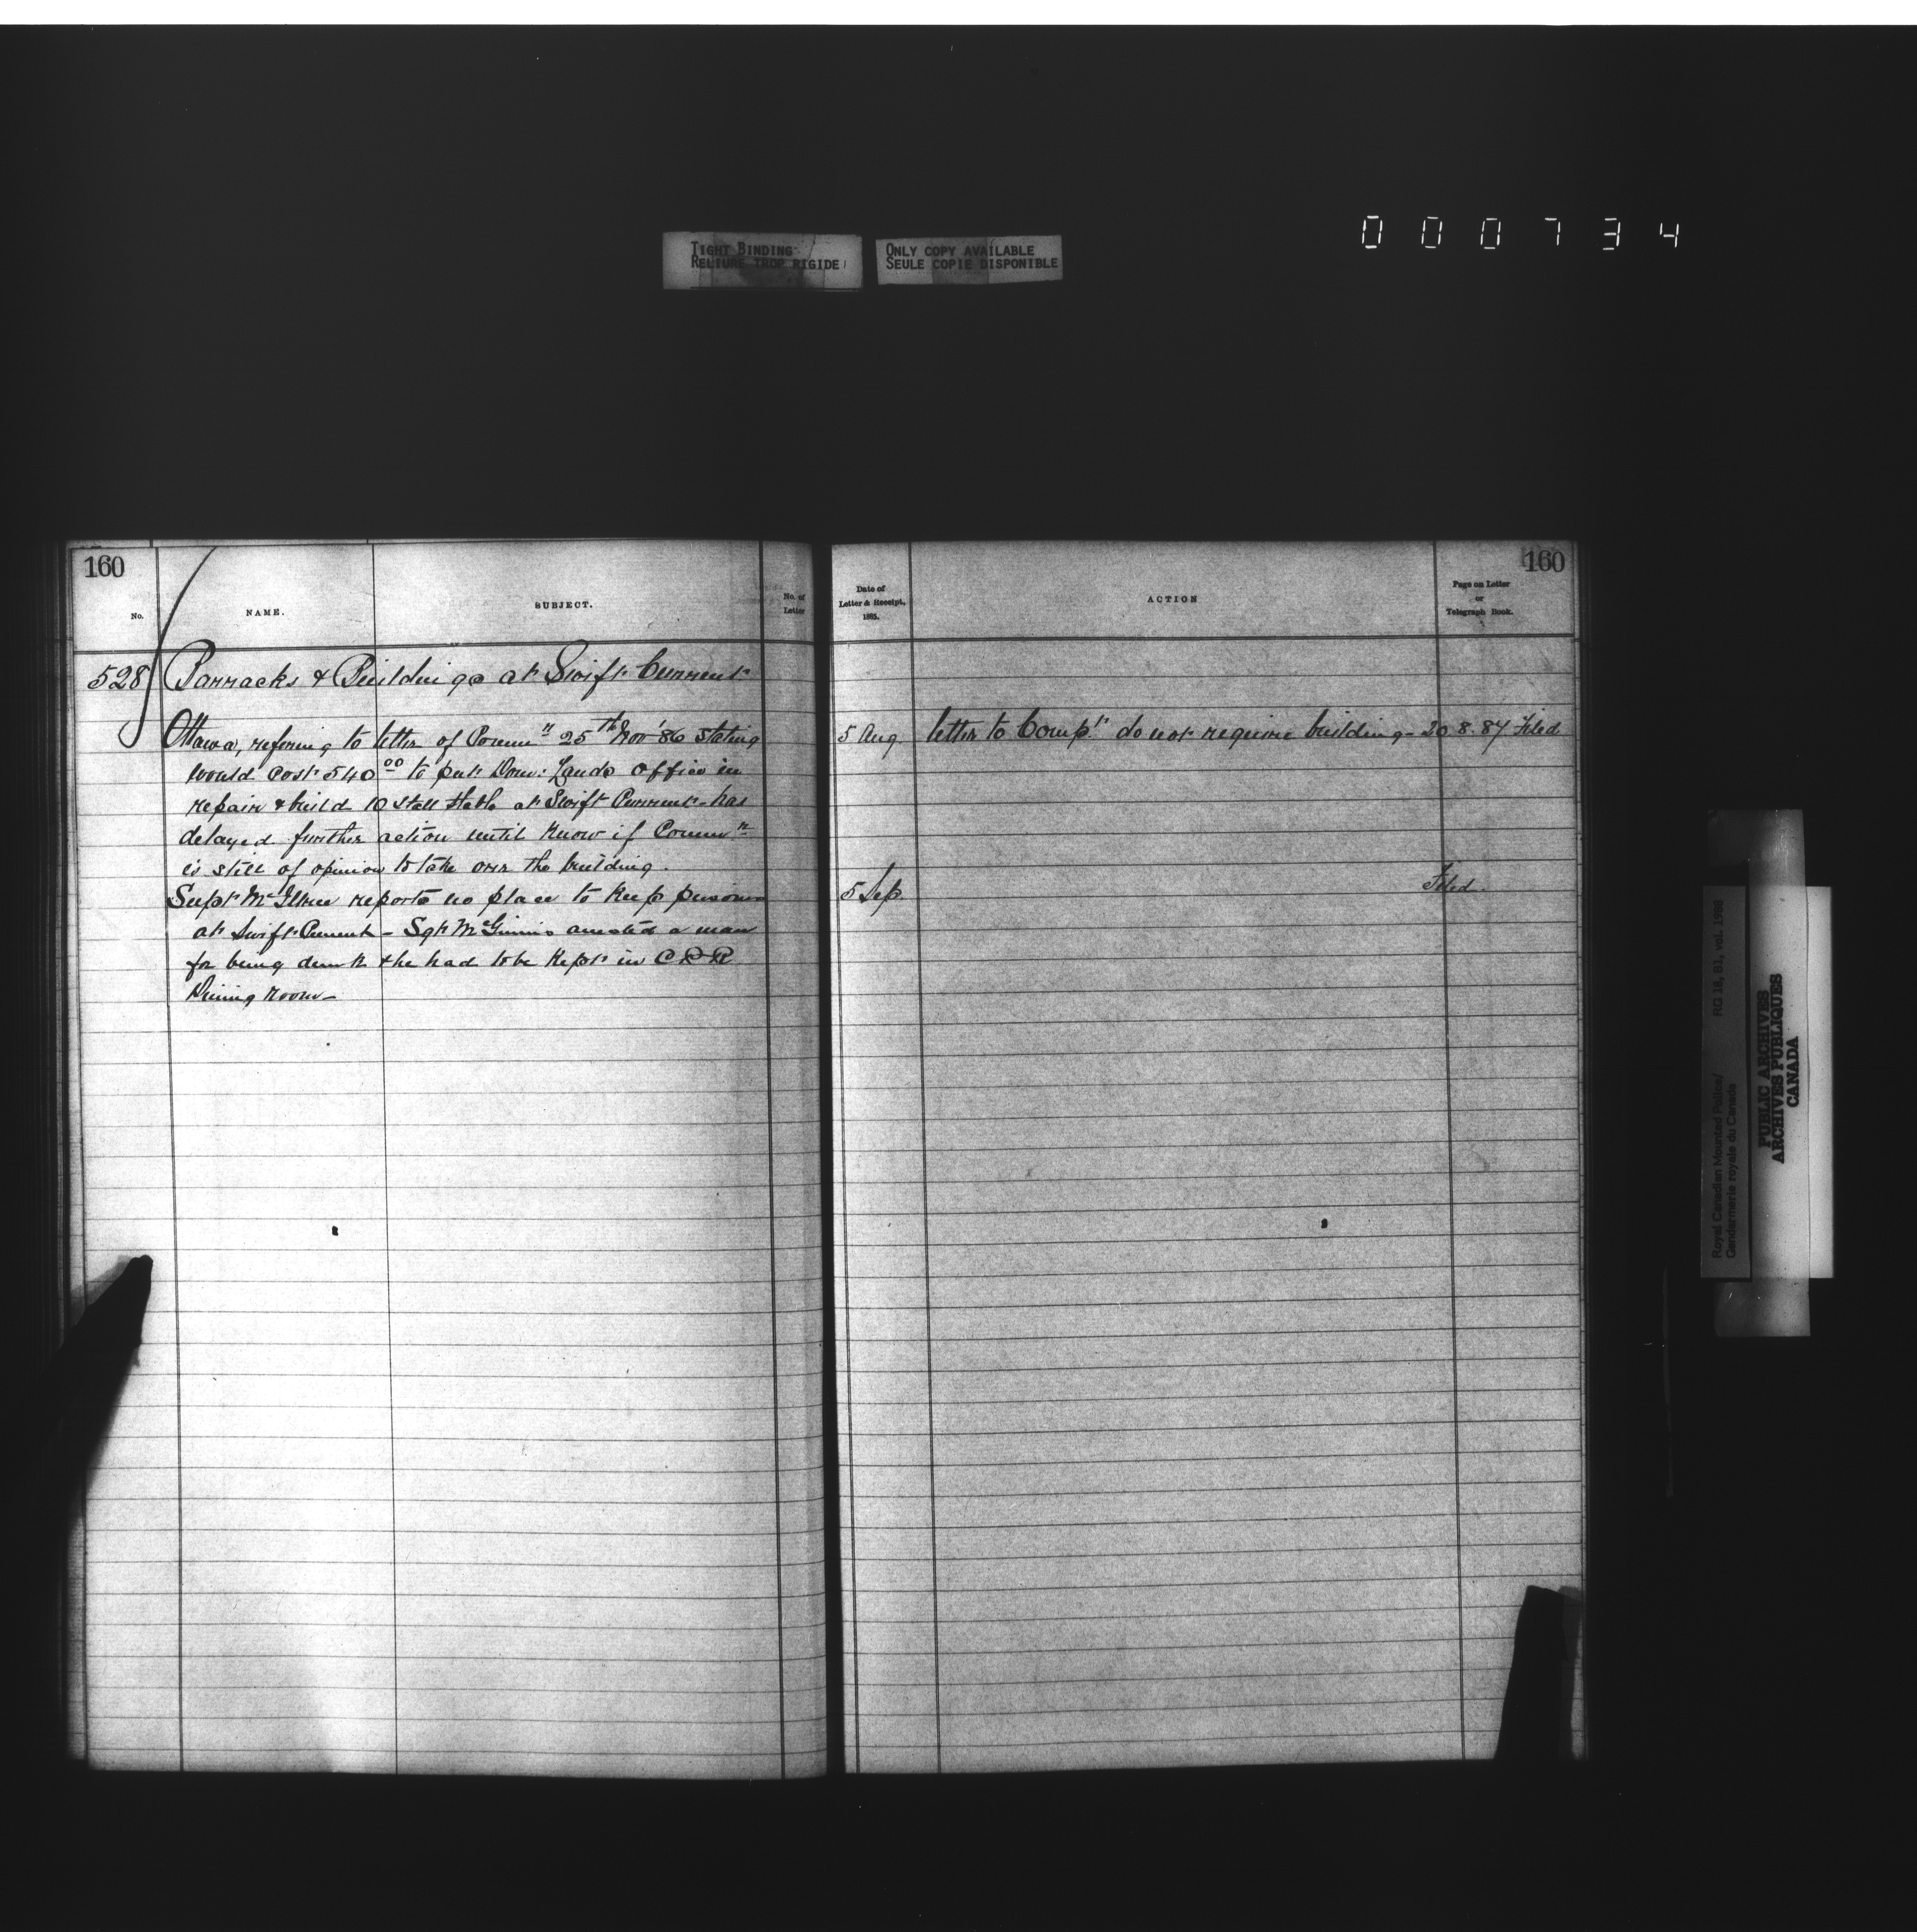 000734
TIGHT BINDING
RELIURE TROP RIGIDE
ONLY COPY AVAILABLE
SEULE COPIE DISPONIBLE
160
No.
NAME.
SUBJECT.
No. of
Letter
528 Barracks & Buildings at Swift Current
Ottawa, refering to letter of Commr 25th Nov '86 stating
would cost 540.00 to put Dom: Lands office in
repair & build 10 stall stable at Swift Current - has
delayed further action until know if Commr
is still of opinion to take over the building.
Supt McIllree reports no place to keep prisoners
at Swift Current - Sgt McGinnis arrested a man
for being drunk & he had to be kept in CPR
Dining Room -
160
Date of
Letter & Receipt,
1885.
ACTION
Page on Letter
or
Telegraph Book.
5 Aug letter to Compr do not require building - 20.8.87 Filed
5 Sep. Filed.
Royal Canadian Mounted Police/
Gendarmerie royale du Canada
RG 18, B1, vol. 1988
PUBLIC ARCHIVES
ARCHIVES PUBLIQUES
CANADA